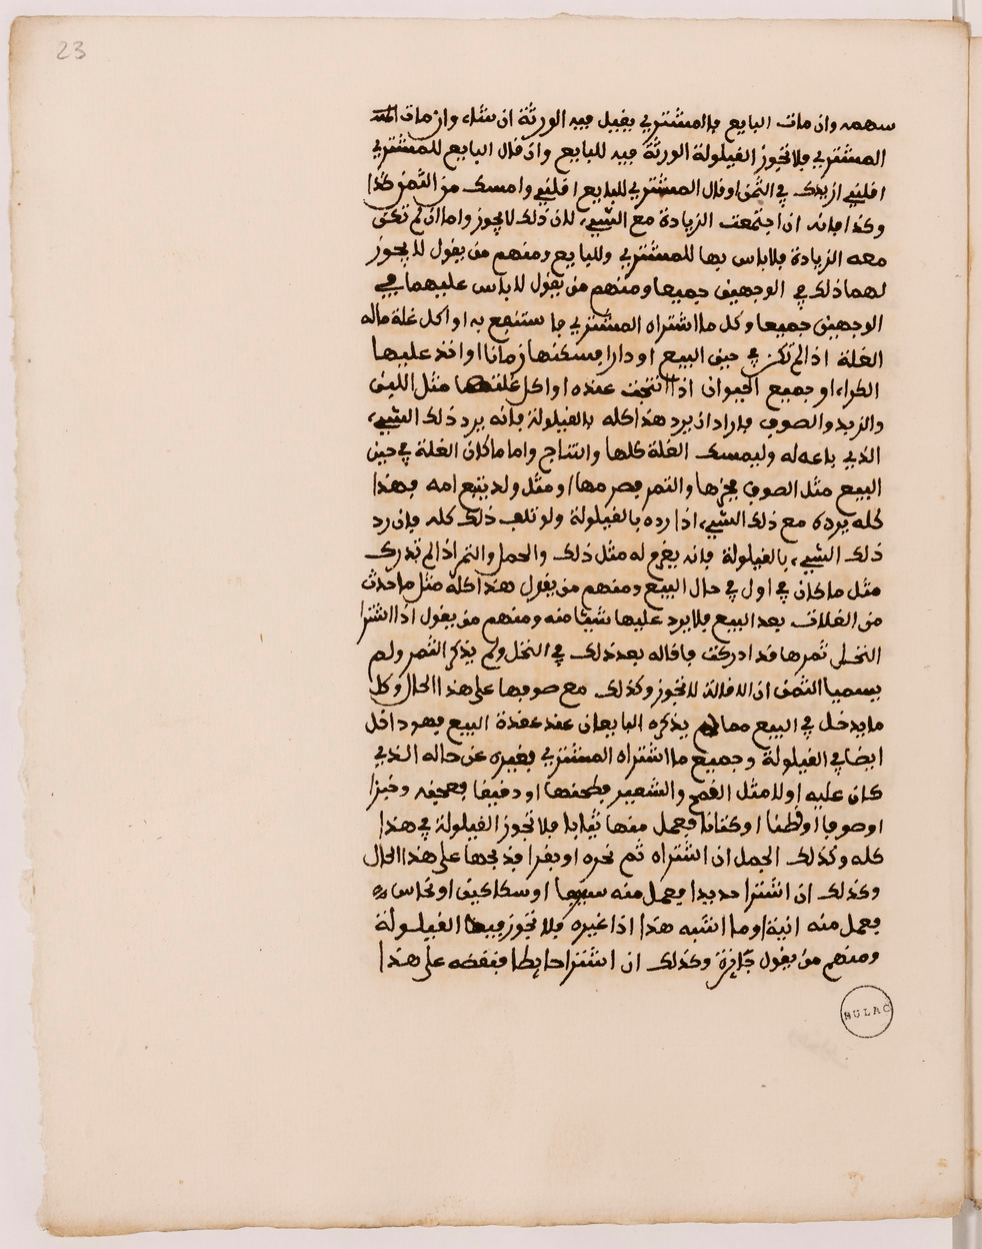 23
سهمه وان مات البايع فالمشتري يقيل فيه الورثة ان شاء وان مات
المشتري فلا تجوز القيلولة الورثة فيه للبايع وان قال البايع للمشتري
اقلني ازيدك في الثمن او قال المشتري للبايع اقلني وامسك من الثمن كذا
وكذا فانه ان اجتمعت الزيادة مع الشيء لان ذلك لا يجوز واما ان لم تكن
معه الزيادة فلا باس بها للمشتري وللبايع ومنهم من يقول لا يجوز
لهما ذلك في الوجهين جميعا ومنهم من يقول لا باس عليهما في
الوجهين جميعا وكل ما اشتراه المشتري فاستنفع به او اكل غلة ماله
الغلة اذا لم تكن في حين البيع او دارا فسكنها زمانا او اخذ عليها
الكراء او جميع الحيوان اذا انتجت عنده او اكل غلتها مثل اللبن
والزبد والصوف فاراد ان يرد هذا كله بالقيلولة فانه يرد ذلك الشيء
الذي باعه له وليمسك الغلة كلها والنتاج واما ما كان الغلة في حين
البيع مثل الصوف فجزها والتمر فصرمها او مثل ولد يتبع امه فهذا
كله يرده مع ذلك الشيء اذا رده بالقيلولة ولو تلف ذلك كله فان رد
ذلك الشيء بالقيلولة فانه يغرم له مثل ذلك والحمل والتمر اذا لم تدرك
مثل ما كان في اول في حال البيع ومنهم من يقول هذا كله مثل ما حدث
من الغلات بعد البيع فلا يرد عليها شيئا منه ومنهم من يقول اذا اشترا
النخل ثمرها قد ادركت فاقاله بعد ذلك في النخل ولم يذكر الثمر ولم
يسميا الثمن ان الاقالة لا تجوز وكذلك مع صوفها على هذا الحال وكل
ما يدخل في البيع مما لم يذكره البايعان عند عقدة البيع فهو داخل
ايضا في القيلولة وجميع ما اشتراه المشتري فغيره عن حاله الذي
كان عليه اولا مثل القمح والشعير فطحنها او دقيقا فعجنه وخبزا
او صوفا او قطنا او كتانا فعمل منها ثيابا فلا تجوز القيلولة في هذا
كله وكذلك الجمل ان اشتراه ثم نحره او بقرا فذبحها على هذا الحال
وكذلك ان اشترا حديدا فعمل منه سيفا او سكاكين او نحاس
فعمل منه انية او ما اشبه هذا اذا غيره فلا تجوز فيها القيلولة
ومنهم من يقول جائزة وكذلك ان اشترا حايطا فنقضه على هذا
BULAC